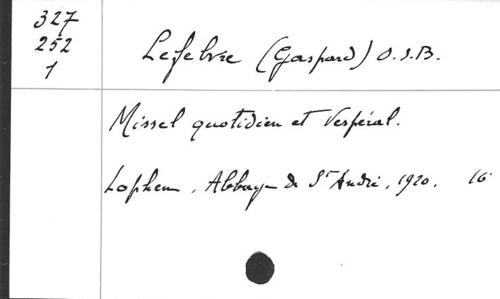 327
252
1
Lefebvre (Gaspard) O.S.B.
Missel quotidien et Vespéral.
Lophem, Abbaye de St André, 1920. 16